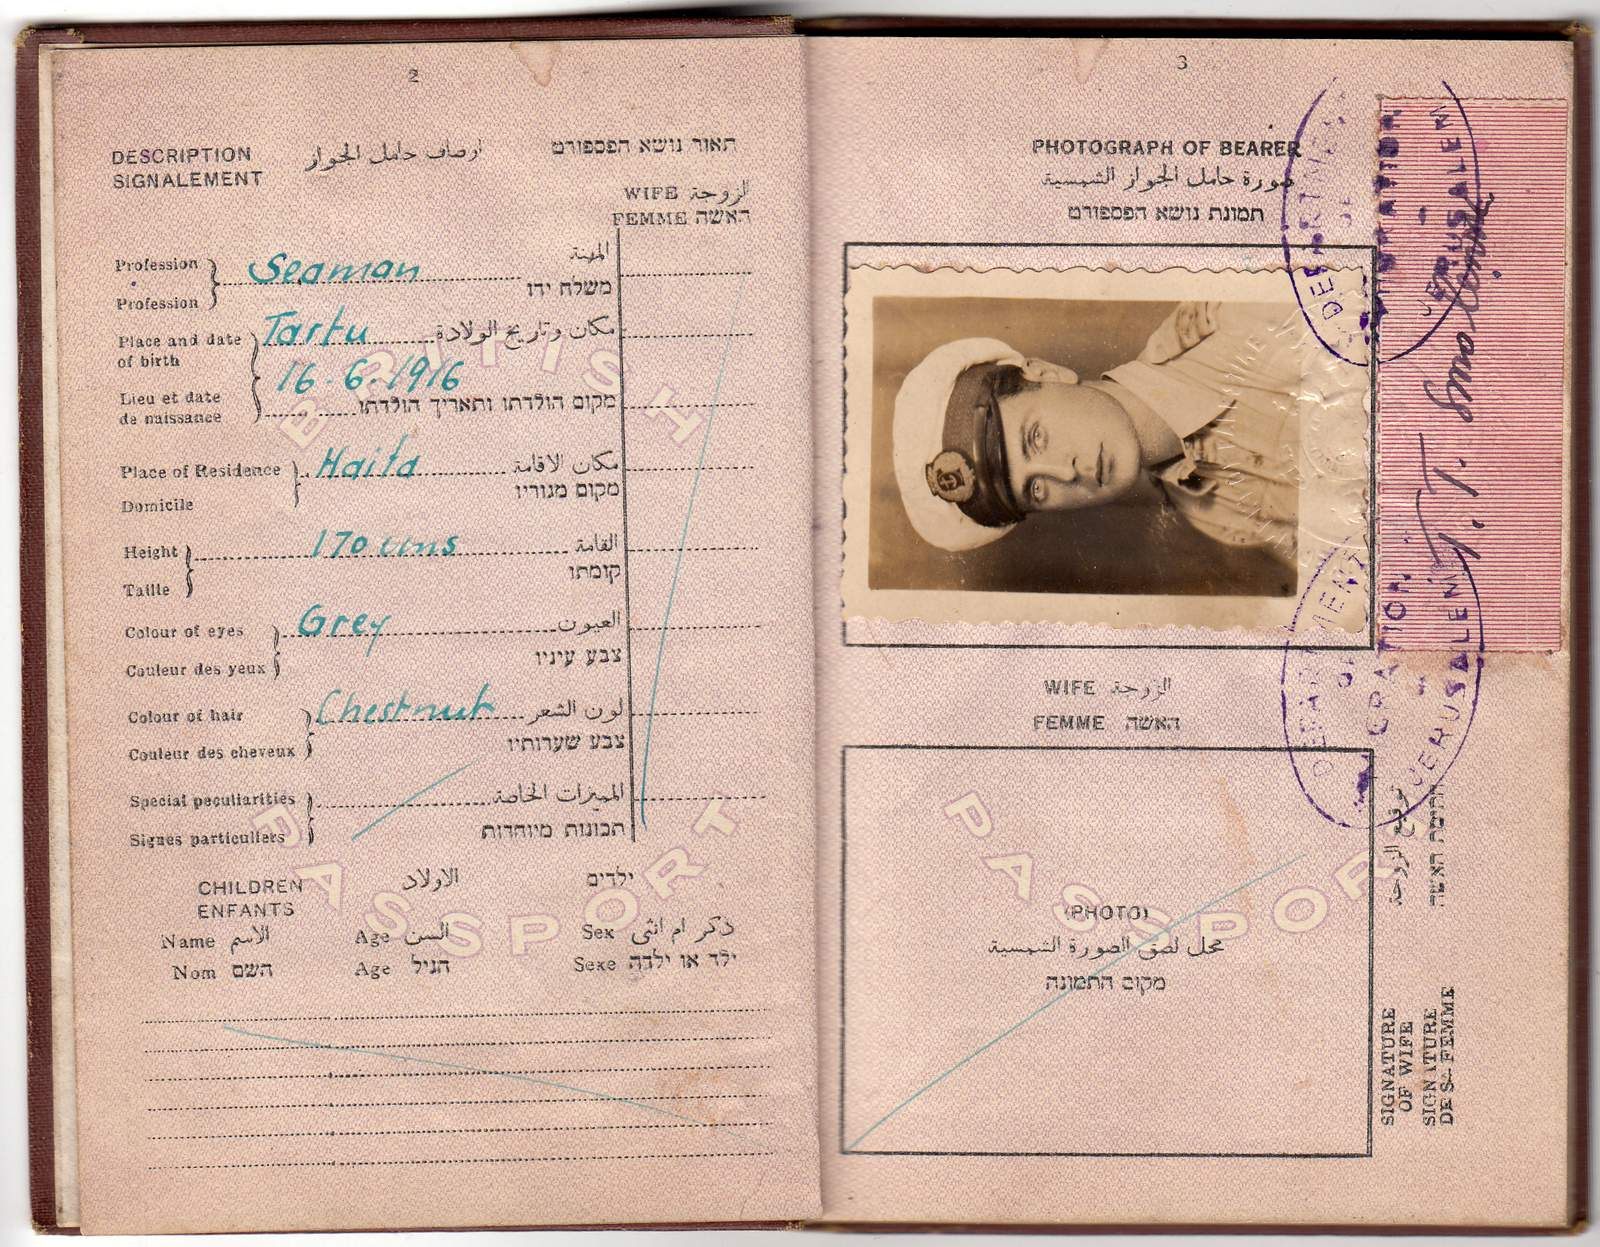 2
DESCRIPTION
SIGNALEMENT
اوصاف حامل الجواز
תאור נושא הפספורט
WIFE الزوجة
FEMME האשה
Profession
Seaman
المهنة
Profession
משלח ידו
Place and date
of birth
Tartu
مكان وتاريخ الولادة
16.6.1916
Lieu et date
de naissance
מקום הולדתו ותאריך הולדתו
Place of Residence
Haifa
مكان الاقامة
Domicile
מקום מגוריו
Height
170 cms
القامة
Taille
קומתו
Colour of eyes
Grey
العيون
Couleur des yeux
צבע עיניו
Colour of hair
Chestnut
لون الشعر
Couleur des cheveux
צבע שערותיו
Special peculiarities
المميزات الخاصة
Signes particuliers
תכונות מיוחדות
BRITISH
PASSPORT
CHILDREN
ENFANTS
الاولاد
ילדים
Name الاسم
Age السن
Sex ذكر ام انثى
Nom השם
Age הגיל
Sexe ילד או ילדה
3
PHOTOGRAPH OF BEARER
صورة حامل الجواز الشمسية
תמונת נושא הפספורט
DEPARTMENT
OF
IMMIGRATION
JERUSALEM
WIFE الزوجة
FEMME האשה
(PHOTO)
محل لصق الصورة الشمسية
מקום התמונה
PASSPORT
DEPARTMENT
OF
IGRATION
JERUSALEM
توقيع الزوجة
חתימת האשה
SIGNATURE
OF WIFE
SIGNATURE
DE SA FEMME